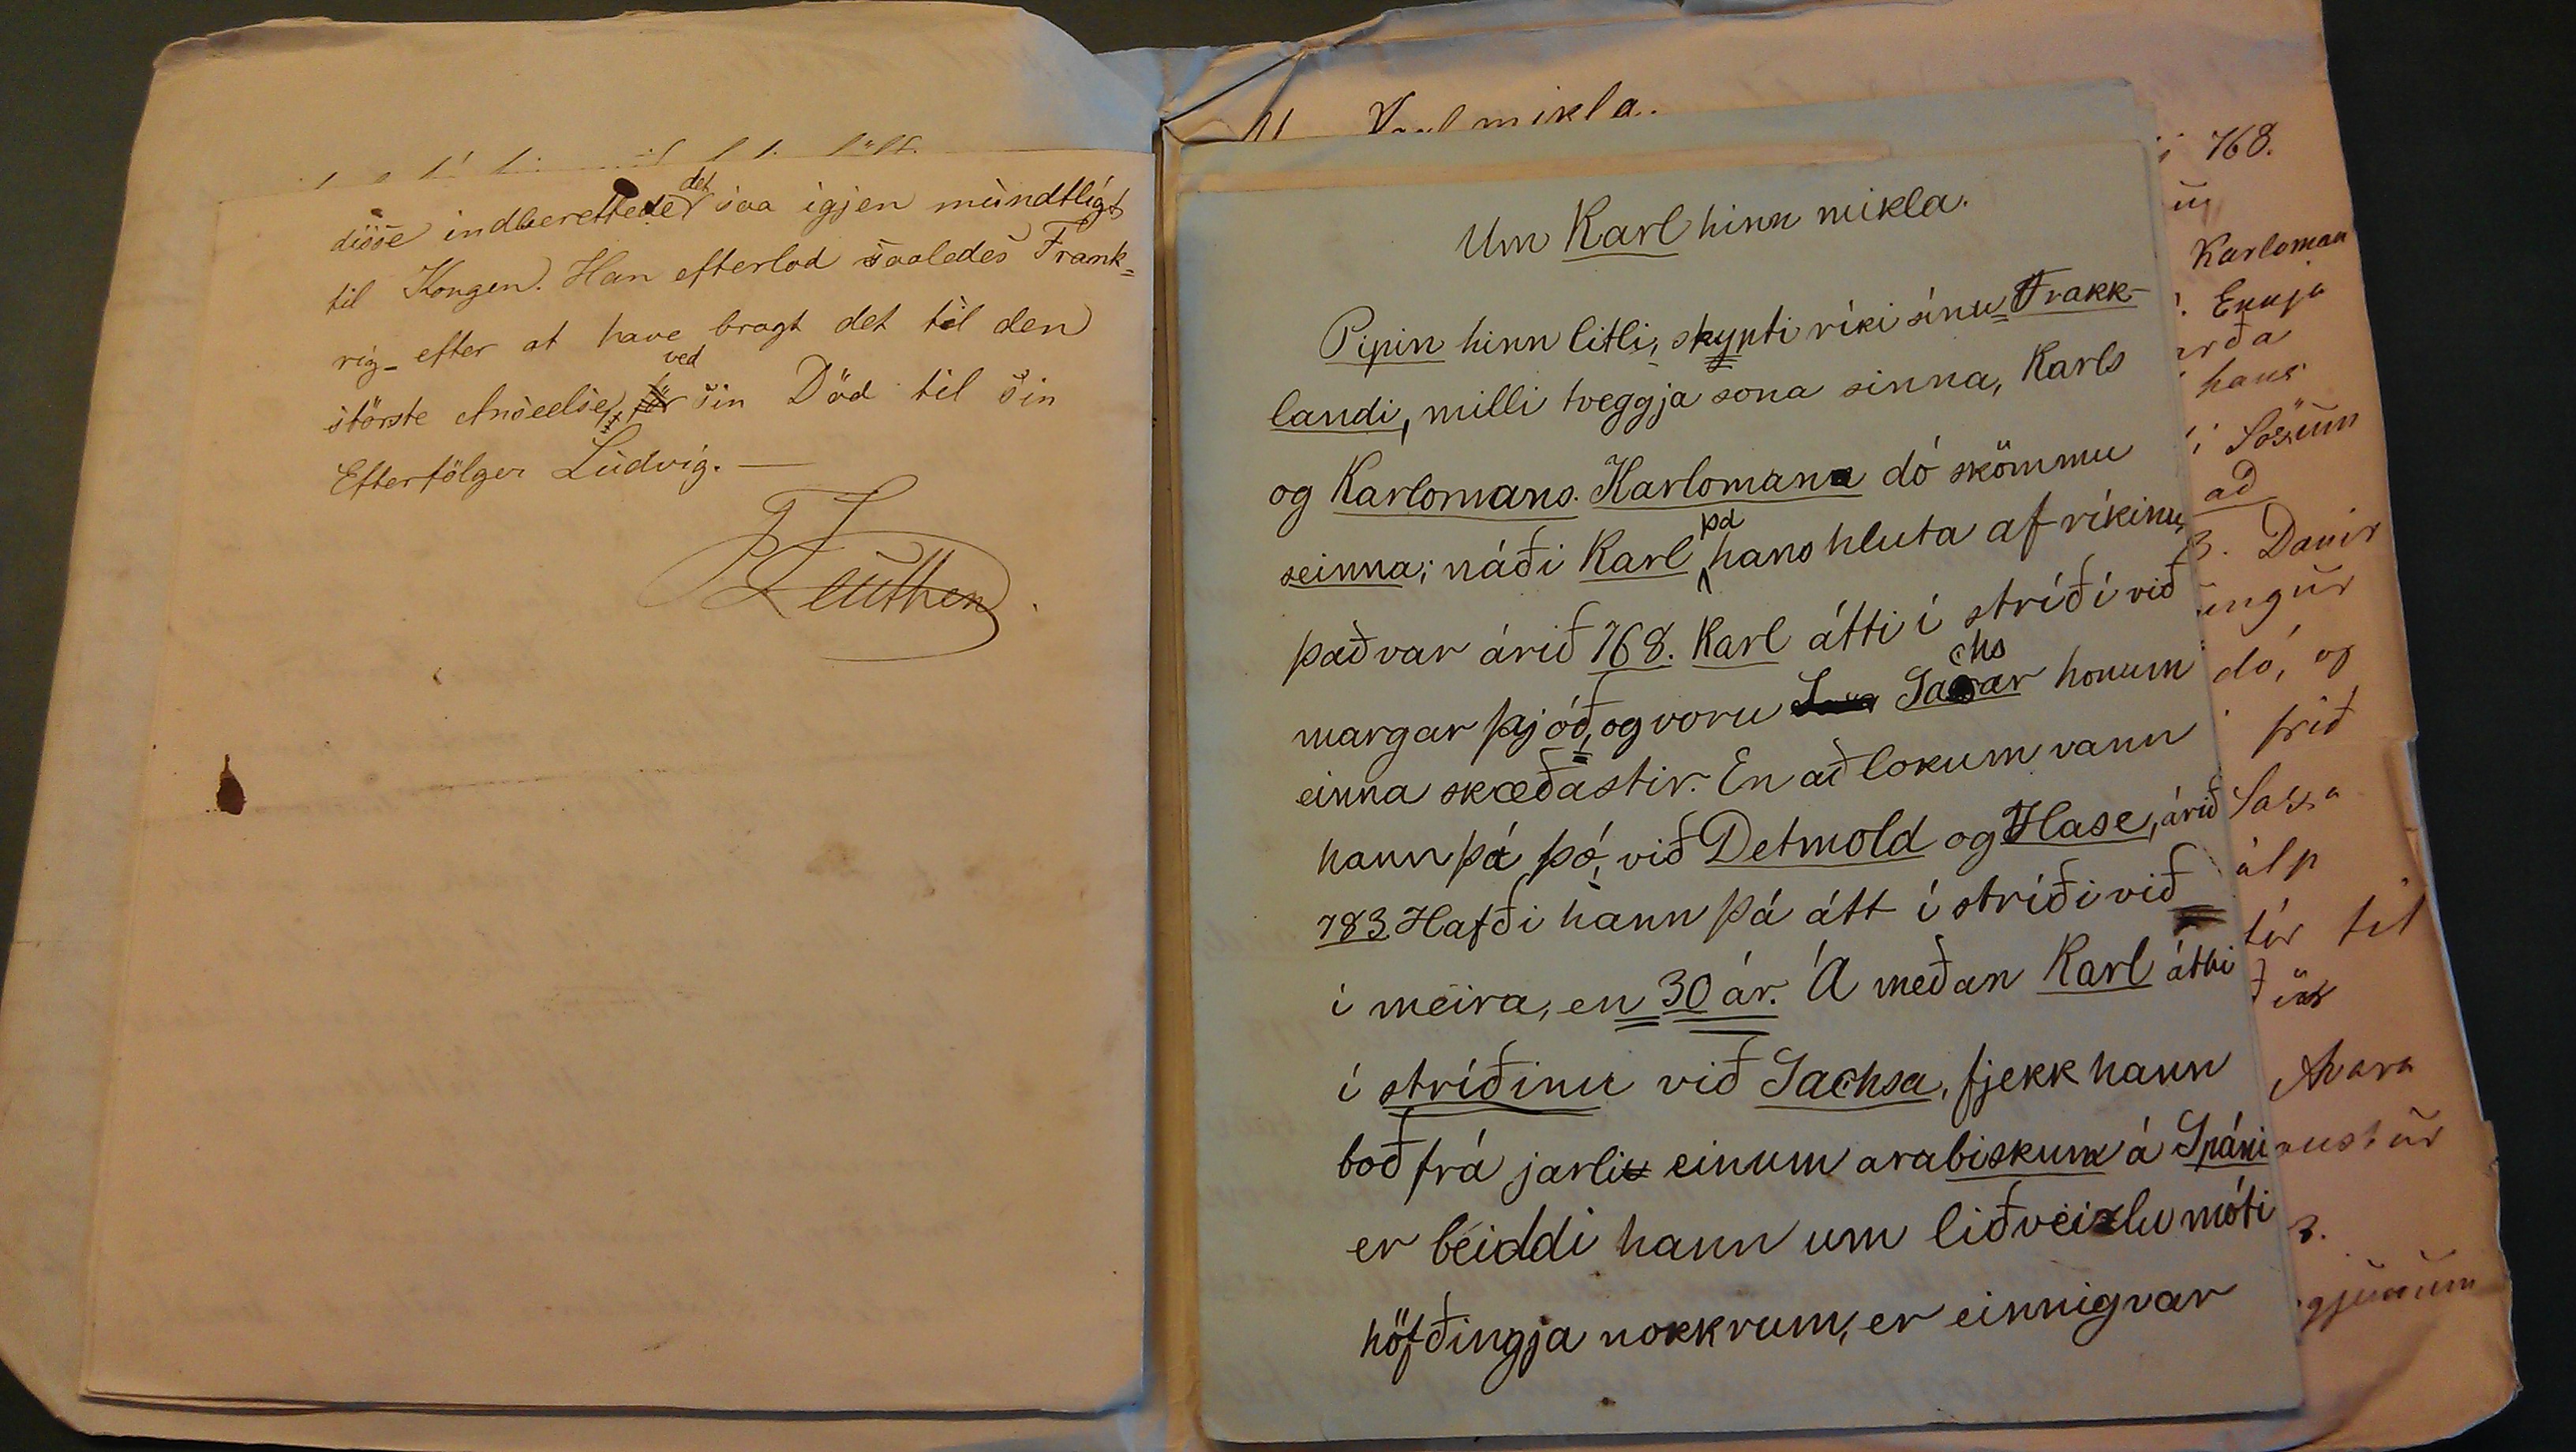 disse indberettede det saa igjen mundtligt
til Kongen. Han efterlod saaledes Frank=
rig- efter at have bragt det til den
störste Anseelse, ved sin Död til sin
Efterfölger Ludvig. —
Leuthen
Karl mikla.
Um Karl hinn mikla.
Pipin hinn litli, skypti ríki sínu Frakk-
landi, milli tveggja sona sinna, Karls
og Karlomans. Karlomann dó skömmu
seinna; náði Karl þá hans hluta af ríkinu,
það var árið 768. Karl átti í stríði við
margar þjóð, og voru Sachsar honum
einna skæðastir. En að lokum vann
hann þá þó, við Detmold og Hase, árið
783. Hafði hann þá átt í stríði við
í meira, en 30 ár. Á meðan Karl átti
í stríðinu við Sachsa, fjekk hann
boð frá jarli einum arabiskum á Spáni
er beiddi hann um liðveizlu móti
höfðingja nokkrum, er einnig var
768.
Karloman
Enuja
arða
hans
Söxum
að
3. Danir
ungur
dó, og
frið
Saxa
álp
tír til
Avara
austur
3.
gjunum